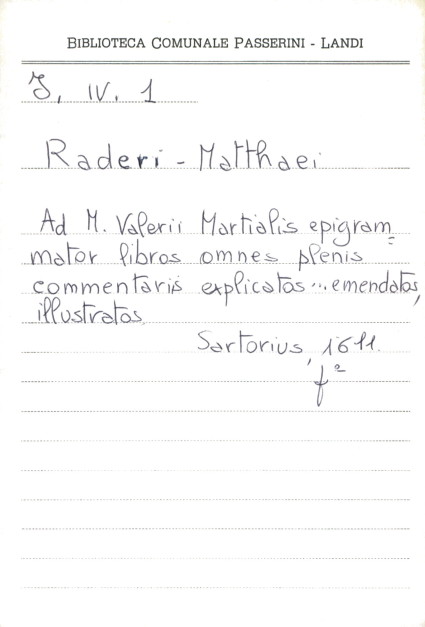 BIBLIOTECA COMUNALE PASSERINI - LANDI
J, IV. 1
Raderi - Matthaei
Ad M. Valerii Martialis epigram=
mator libros omnes plenis
commentaris explicatos ... emendatos,
illustratos.
Sartorius, 1611.
fº